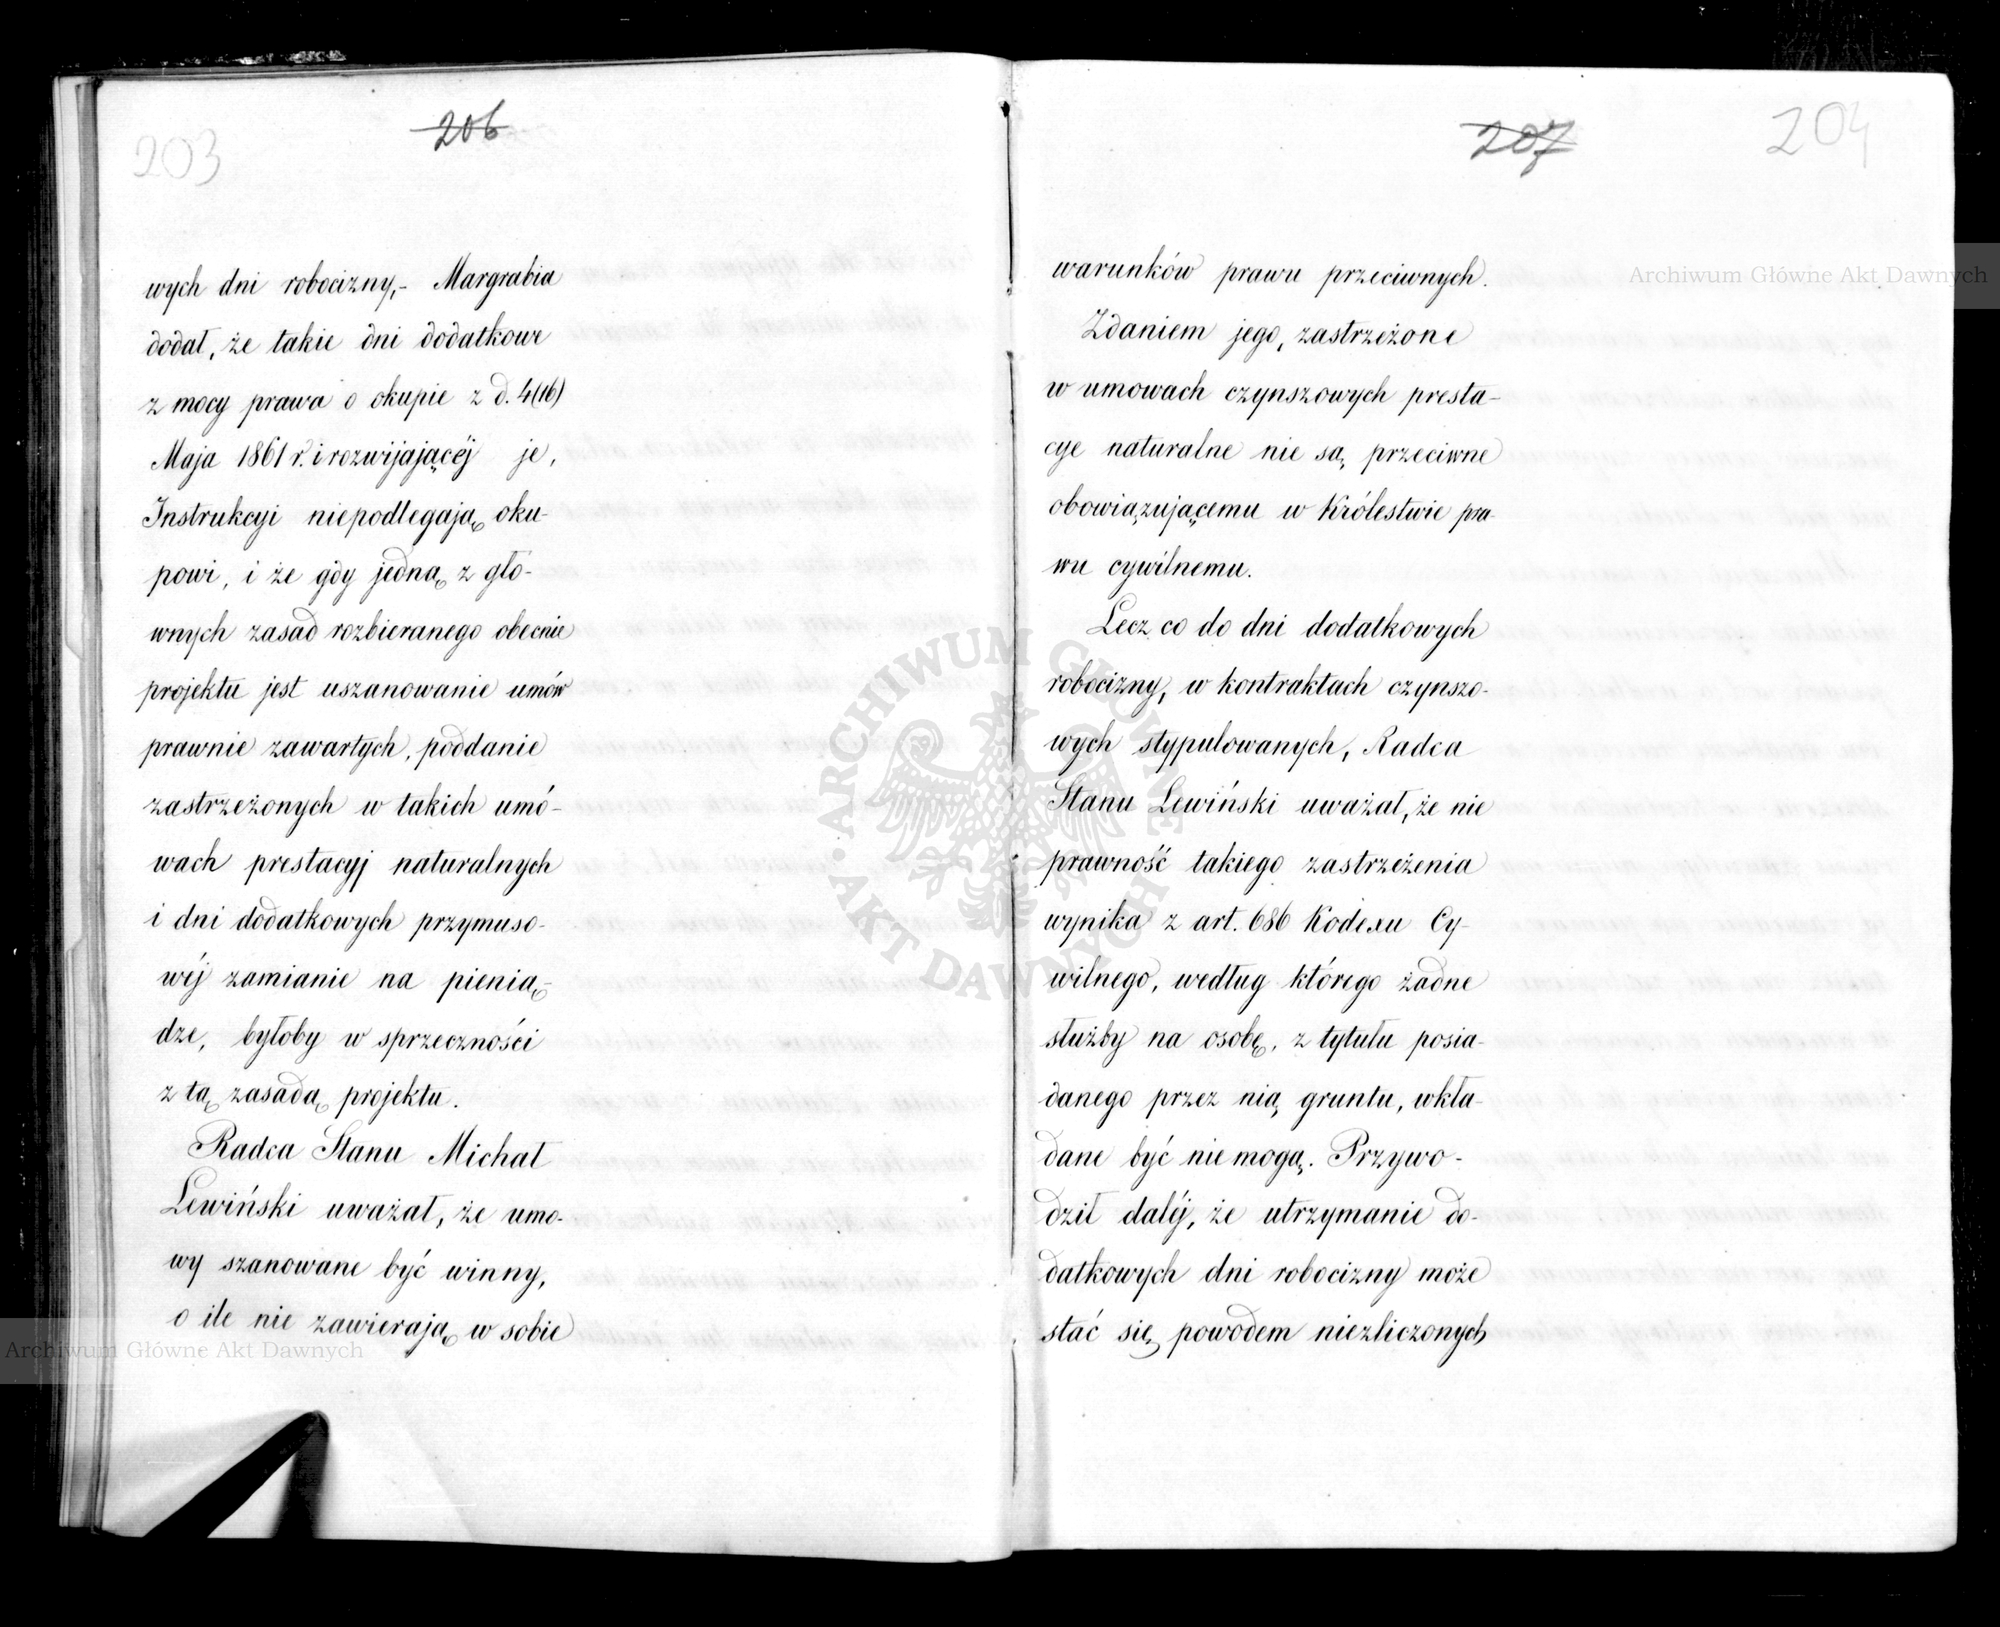 203
206
wych dni robocizny,- Margrabia
dodał, że takie dni dodatkowe
z mocy prawa o okupie z d. 4(16)
Maja 1861 r. i rozwijającéj je,
Instrukcyi niepodlegają oku-
powi, i że gdy jedną z głó-
wnych zasad rozbieranego obecnie
projektu jest uszanowanie umów
prawnie zawartych, poddanie
zastrzeżonych w takich umó-
wach prestacyj naturalnych
i dni dodatkowych przymuso-
wéj zamianie na pienią-
dze, byłoby w sprzeczności
z tą zasadą projektu.
Radca Stanu Michał
Lewiński uważał, że umo-
wy szanowane być winny,
o ile nie zawierają w sobie
207
204
warunków prawu przeciwnych.
Zdaniem jego, zastrzeżone
w umowach czynszowych presta-
cye naturalne nie są przeciwne
obowiązującemu w Królestwie pra-
wu cywilnemu.
Lecz co do dni dodatkowych
robocizny, w kontraktach czynszo-
wych stypulowanych, Radca
Stanu Lewiński uważał, że nie
prawność takiego zastrzeżenia
wynika z art. 686 Kodexu Cy-
wilnego, według którego żadne
służby na osobę, z tytułu posia-
danego przez nią gruntu, wkła-
dane być nie mogą. Przywo-
dził daléj, że utrzymanie do-
datkowych dni robocizny może
stać się powodem niezliczonych
Archiwum Główne Akt Dawnych
ARCHIWUM GŁÓWNE
AKT DAWNYCH
Archiwum Główne Akt Dawnych